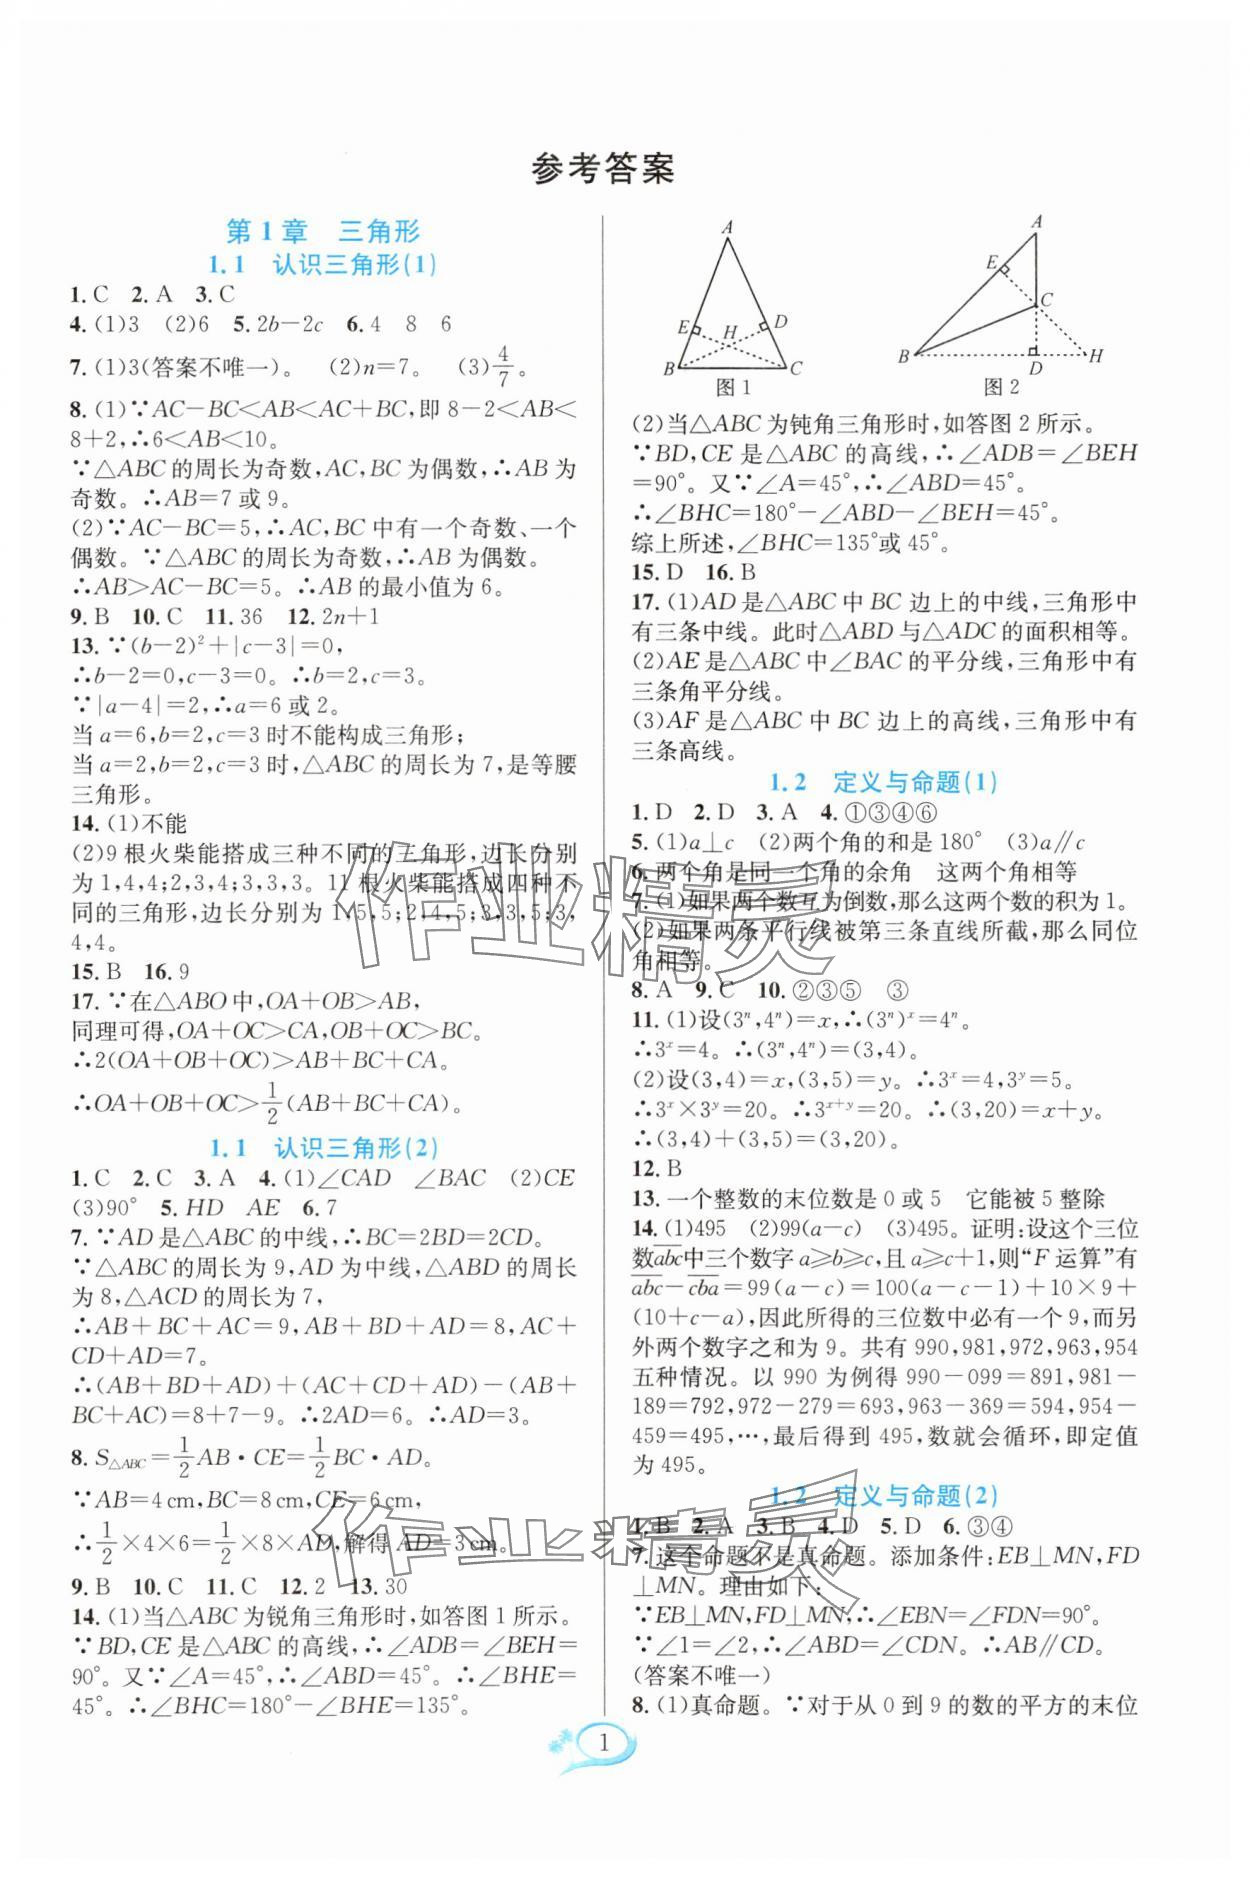 参考答案
第1章 三角形
1.1 认识三角形(1)
1. C 2. A 3. C
4. (1)3 (2)6 5. 2b－2c 6. 4 8 6
7. (1)3(答案不唯一)。 (2)n=7。 (3)4/7。
8. (1)∵AC－BC<AB<AC+BC,即 8－2<AB<
8+2,∴6<AB<10。
∵△ABC 的周长为奇数,AC,BC 为偶数,∴AB 为
奇数。∴AB=7 或 9。
(2)∵AC－BC=5,∴AC,BC 中有一个奇数、一个
偶数。∵△ABC 的周长为奇数,∴AB 为偶数。
∴AB>AC－BC=5。∴AB 的最小值为 6。
9. B 10. C 11. 36 12. 2n+1
13. ∵(b－2)²+|c－3|=0,
∴b－2=0,c－3=0。∴b=2,c=3。
∵|a－4|=2,∴a=6 或 2。
当 a=6,b=2,c=3 时不能构成三角形;
当 a=2,b=2,c=3 时,△ABC 的周长为 7,是等腰
三角形。
14. (1)不能
(2)9 根火柴能搭成三种不同的三角形,边长分别
为 1,4,4;2,3,4;3,3,3。11 根火柴能搭成四种不
同的三角形,边长分别为 1,5,5;2,4,5;3,3,5;3,
4,4。
15. B 16. 9
17. ∵在△ABO 中,OA+OB>AB,
同理可得,OA+OC>CA,OB+OC>BC。
∴2(OA+OB+OC)>AB+BC+CA。
∴OA+OB+OC>1/2(AB+BC+CA)。
1.1 认识三角形(2)
1. C 2. C 3. A 4. (1)∠CAD ∠BAC (2)CE
(3)90° 5. HD AE 6. 7
7. ∵AD 是△ABC 的中线,∴BC=2BD=2CD。
∵△ABC 的周长为 9,AD 为中线,△ABD 的周长
为 8,△ACD 的周长为 7,
∴AB+BC+AC=9,AB+BD+AD=8,AC+
CD+AD=7。
∴(AB+BD+AD)+(AC+CD+AD)－(AB+
BC+AC)=8+7－9。∴2AD=6。∴AD=3。
8. S△ABC=1/2AB·CE=1/2BC·AD。
∵AB=4 cm,BC=8 cm,CE=6 cm,
∴1/2×4×6=1/2×8×AD,解得 AD=3 cm。
9. B 10. C 11. C 12. 2 13. 30
14. (1)当△ABC 为锐角三角形时,如答图 1 所示。
∵BD,CE 是△ABC 的高线,∴∠ADB=∠BEH=
90°。又∵∠A=45°,∴∠ABD=45°。∴∠BHE=
45°。∴∠BHC=180°－∠BHE=135°。
A
E
H
D
B
C
图 1
A
E
C
B
D
H
图 2
(2)当△ABC 为钝角三角形时,如答图 2 所示。
∵BD,CE 是△ABC 的高线,∴∠ADB=∠BEH
=90°。又∵∠A=45°,∴∠ABD=45°。
∴∠BHC=180°－∠ABD－∠BEH=45°。
综上所述,∠BHC=135°或 45°。
15. D 16. B
17. (1)AD 是△ABC 中 BC 边上的中线,三角形中
有三条中线。此时△ABD 与△ADC 的面积相等。
(2)AE 是△ABC 中∠BAC 的平分线,三角形中有
三条角平分线。
(3)AF 是△ABC 中 BC 边上的高线,三角形中有
三条高线。
1.2 定义与命题(1)
1. D 2. D 3. A 4. ①③④⑥
5. (1)a⊥c (2)两个角的和是 180° (3)a∥c
6. 两个角是同一个角的余角 这两个角相等
7. (1)如果两个数互为倒数,那么这两个数的积为 1。
(2)如果两条平行线被第三条直线所截,那么同位
角相等。
8. A 9. C 10. ②③⑤ ③
11. (1)设(3ⁿ,4ⁿ)=x,∴(3ⁿ)ˣ=4ⁿ。
∴3ˣ=4。∴(3ⁿ,4ⁿ)=(3,4)。
(2)设(3,4)=x,(3,5)=y。∴3ˣ=4,3ʸ=5。
∴3ˣ×3ʸ=20。∴3ˣ⁺ʸ=20。∴(3,20)=x+y。
∴(3,4)+(3,5)=(3,20)。
12. B
13. 一个整数的末位数是 0 或 5 它能被 5 整除
14. (1)495 (2)99(a－c) (3)495。证明:设这个三位
数a̅b̅c̅中三个数字 a≥b≥c,且 a≥c+1,则“F 运算”有
a̅b̅c̅－c̅b̅a̅=99(a－c)=100(a－c－1)+10×9+
(10+c－a),因此所得的三位数中必有一个 9,而另
外两个数字之和为 9。共有 990,981,972,963,954
五种情况。以 990 为例得 990－099=891,981－
189=792,972－279=693,963－369=594,954－
459=495,…,最后得到 495,数就会循环,即定值
为 495。
1.2 定义与命题(2)
1. B 2. A 3. B 4. D 5. D 6. ③④
7. 这个命题不是真命题。添加条件:EB⊥MN,FD
⊥MN。理由如下:
∵EB⊥MN,FD⊥MN,∴∠EBN=∠FDN=90°。
∵∠1=∠2,∴∠ABD=∠CDN。∴AB∥CD。
(答案不唯一)
8. (1)真命题。∵对于从 0 到 9 的数的平方的末位
1
作业精灵
作业精灵